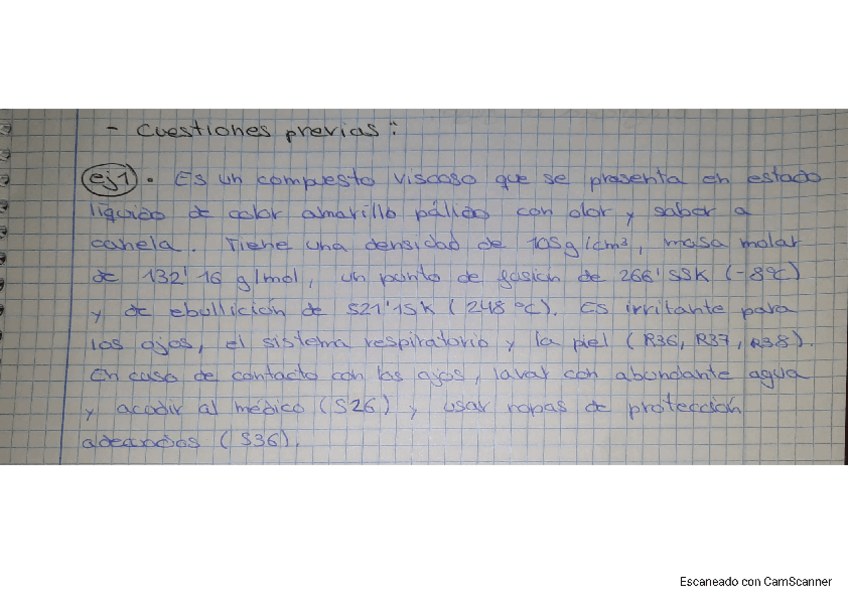 - Cuestiones previas:
ej1. Es un compuesto viscoso que se presenta en estado
líquido de color amarillo pálido con olor y sabor a
canela. Tiene una densidad de 105g/cm³, masa molar
de 132'16 g/mol, un punto de fusión de 266'55K (-8ºC)
y de ebullición de 521'15K (248 ºC). Es irritante para
los ojos, el sistema respiratorio y la piel (R36, R37, R38).
En caso de contacto con los ojos, lavar con abundante agua
y acudir al médico (S26) y usar ropas de protección
adecuadas (S36).
Escaneado con CamScanner